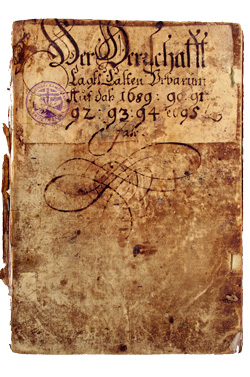 Der Herrschafft
Urbarium
Auf das 1689: 90: 91
92: 93: 94 et 95
Jahr.